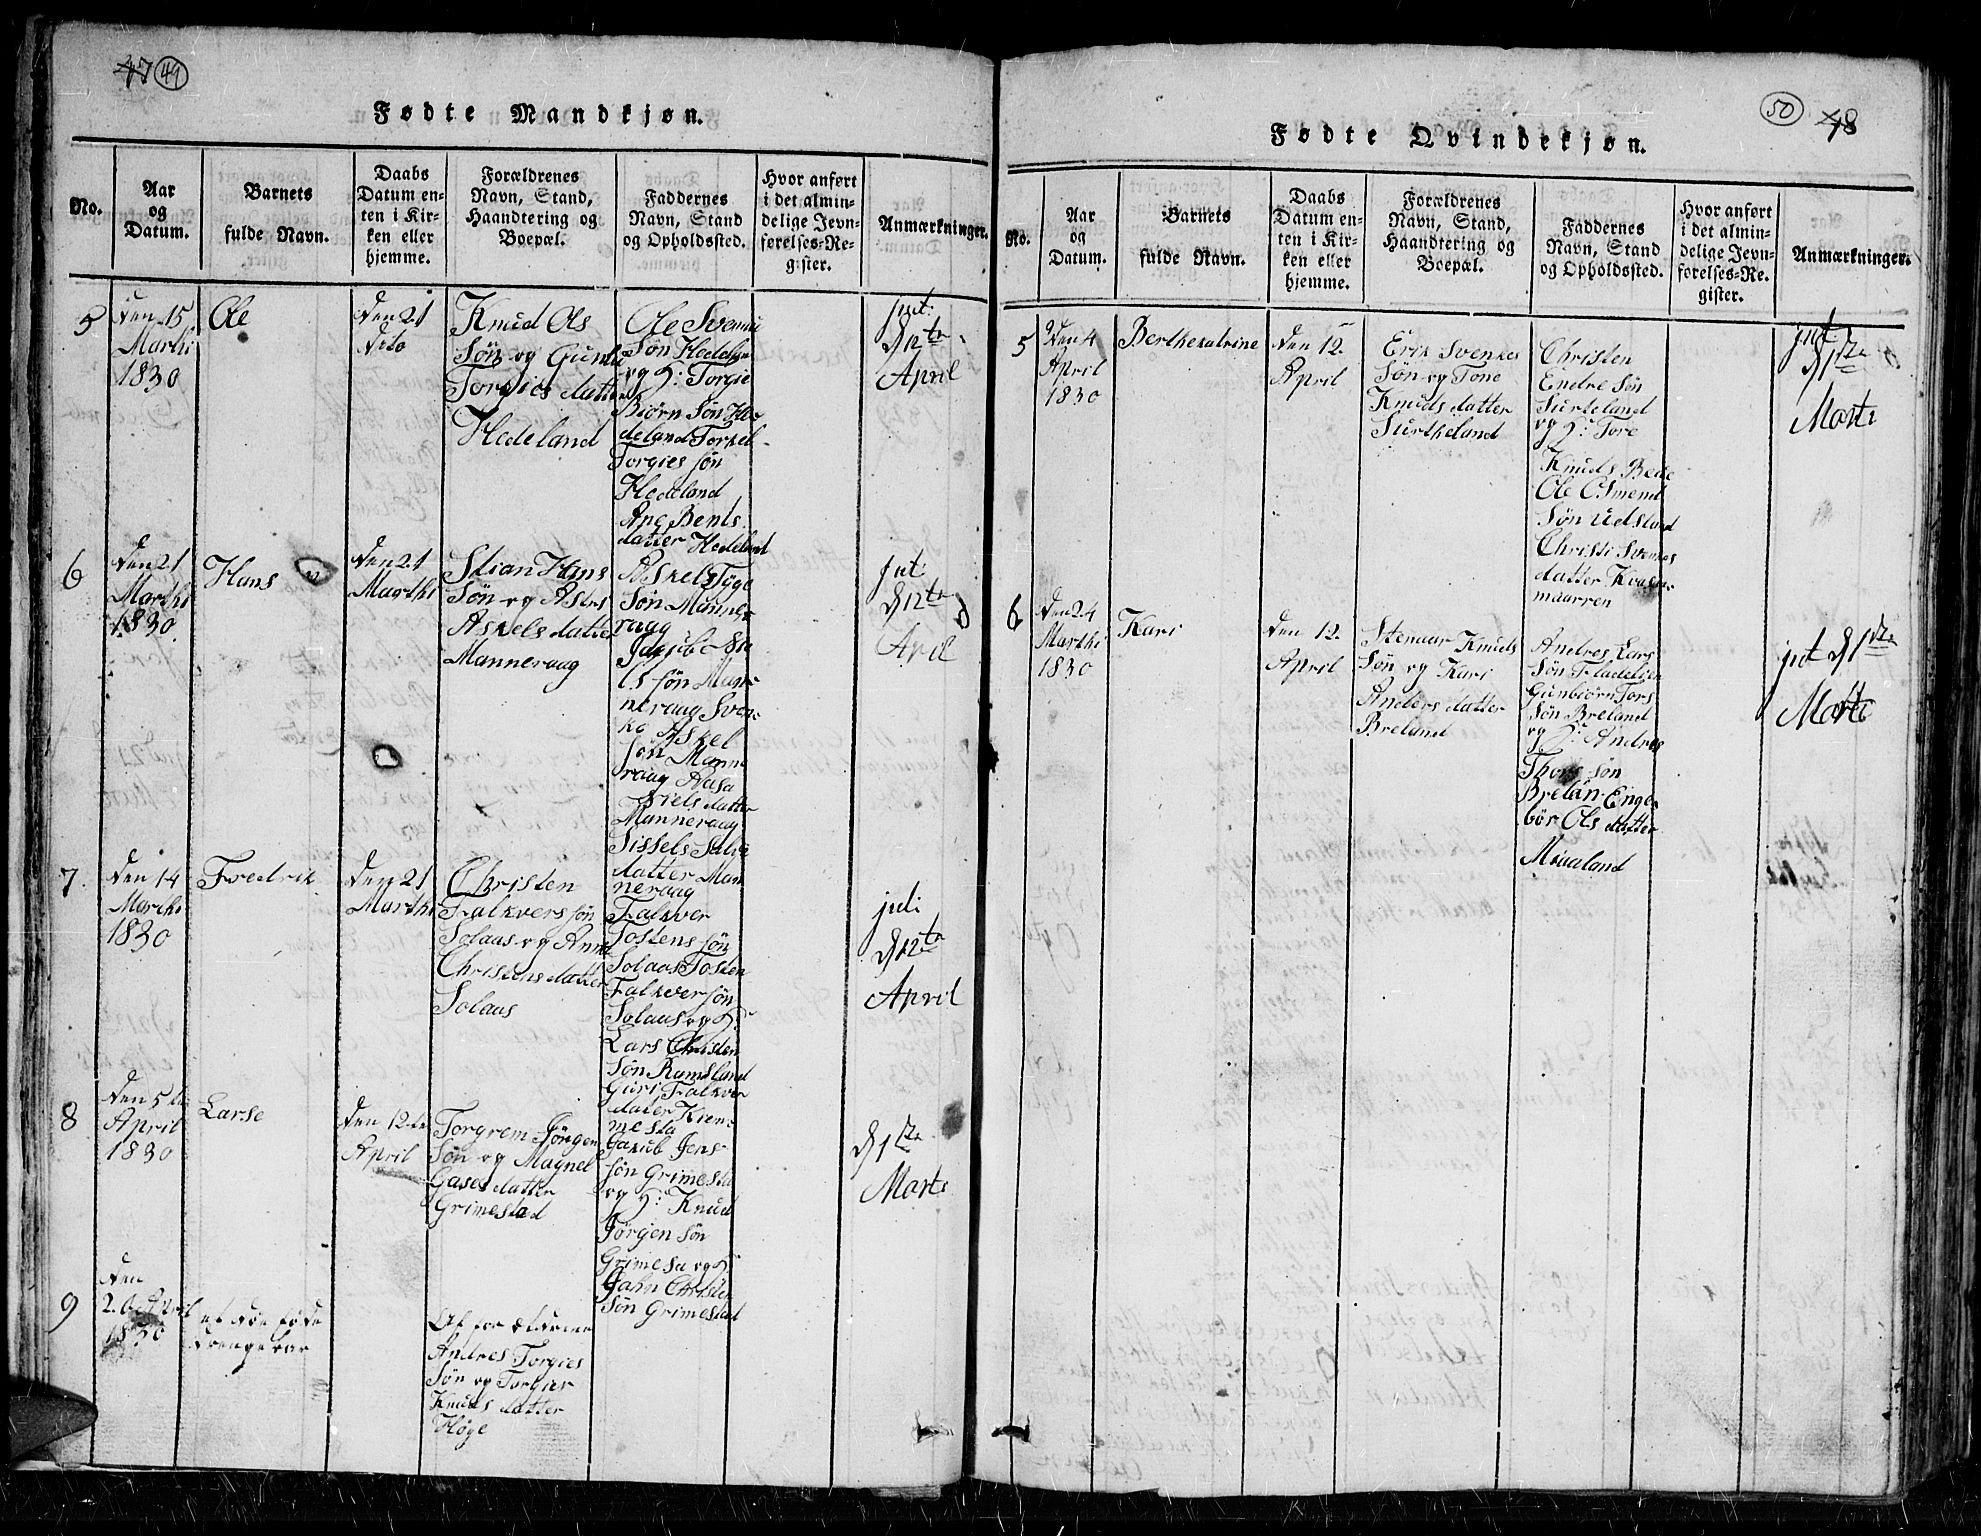 47 49
Fødte Mandkjøn.
No.
Aar
og
Datum.
Barnets
fulde Navn.
Daabs
Datum en-
ten i Kir-
ken eller
hjemme.
Forældrenes
Navn, Stand,
Haandtering og
Boepæl.
Faddernes
Navn, Stand
og Opholdssted.
Hvor anført
i det almin-
delige Jevn-
førelses-Re-
gister.
Anmærkninger.
5
den 15
Marthi
1830
Ole
den 21
dito
Knud Ols
Søn og Gunil
Torgies datter
Hedeland
Ole Svenni
Søn Hedeland
og H: Torgie
Biørn Søn He-
deland Torkel
Torgies søn
Hedeland
Ane Bents
datter Hedeland
jut:
D 12te
April
6
den 21
Marthi
1830
Hans
den 21
Marthi
Stian Hans
Søn og Astri
Askels datter
Manneraag
Askel Tyge
Søn Manne-
raag
Jakub
ls søn Man-
neraag Sven-
ke Askel
søn Manne
raag Aasa
Niels datter
Manneraag
Sissel
datter Man
neraag
jut:
D 12te
April
7
den 14
Marthi
1830
Fredrik
den 21
Marthi
Christen
Falkvers søn
Solaas og Anne
Christens datter
Solaas
Falkver
Tostens søn
Solaas Tosten
Falkver søn
Solaas og H:
Lars Christen
Søn Ramsland
Guri Falkver
dater Kiem-
mesta
juti
D 12te
April
8
den 5te
April
1830
Larse
den 12te
April
Torgrem Jörgen
Søn og Magnel
Gases datter
Grimestad
Jakub Jens
søn Grimesta
og H: Knud
Jörgen søn
Grimesta og H:
Jahn Christen
Søn Grimestad
D 1te
Marts
9
den
2. April
1830
et død føde
drengebar
Af forældrene
Andres Torgies
Søn og Torgier
Knuds datter
Høge
50 48
Fødte Qvindekjøn.
No.
Aar
og
Datum.
Barnets
fulde Navn.
Daabs
Datum en-
ten i Kir-
ken eller
hjemme.
Forældrenes
Navn, Stand,
Haandtering og
Boepæl.
Faddernes
Navn, Stand
og Opholdssted.
Hvor anført
i det almin-
delige Jevn-
førelses-Re-
gister.
Anmærkninger.
5
Den 4
April
1830
Berthekatrine
den 12
April
Erik Svenkes
Søn og Tone
Knuds datter
Surtheland
Christen
Endre Søn
Surteland
og H: Tore
Knuds Bede
Ole Osmend
Søn Udsland
Christi Svenkes
datter Kvasen-
maarren
jut
D 1te
Marts
6
den 24
Marthi
1830
Kari
den 12
April
Stenaar Knuds
Søn og Kari
Anders datter
Breland
Andres Lars
Søn Fladelien
Gunbiörn Tors
Søn Breland
og H: Andres
Thors søn
Brelan Enge-
bör Ols datter
Moualand
jut D 1te
Marts